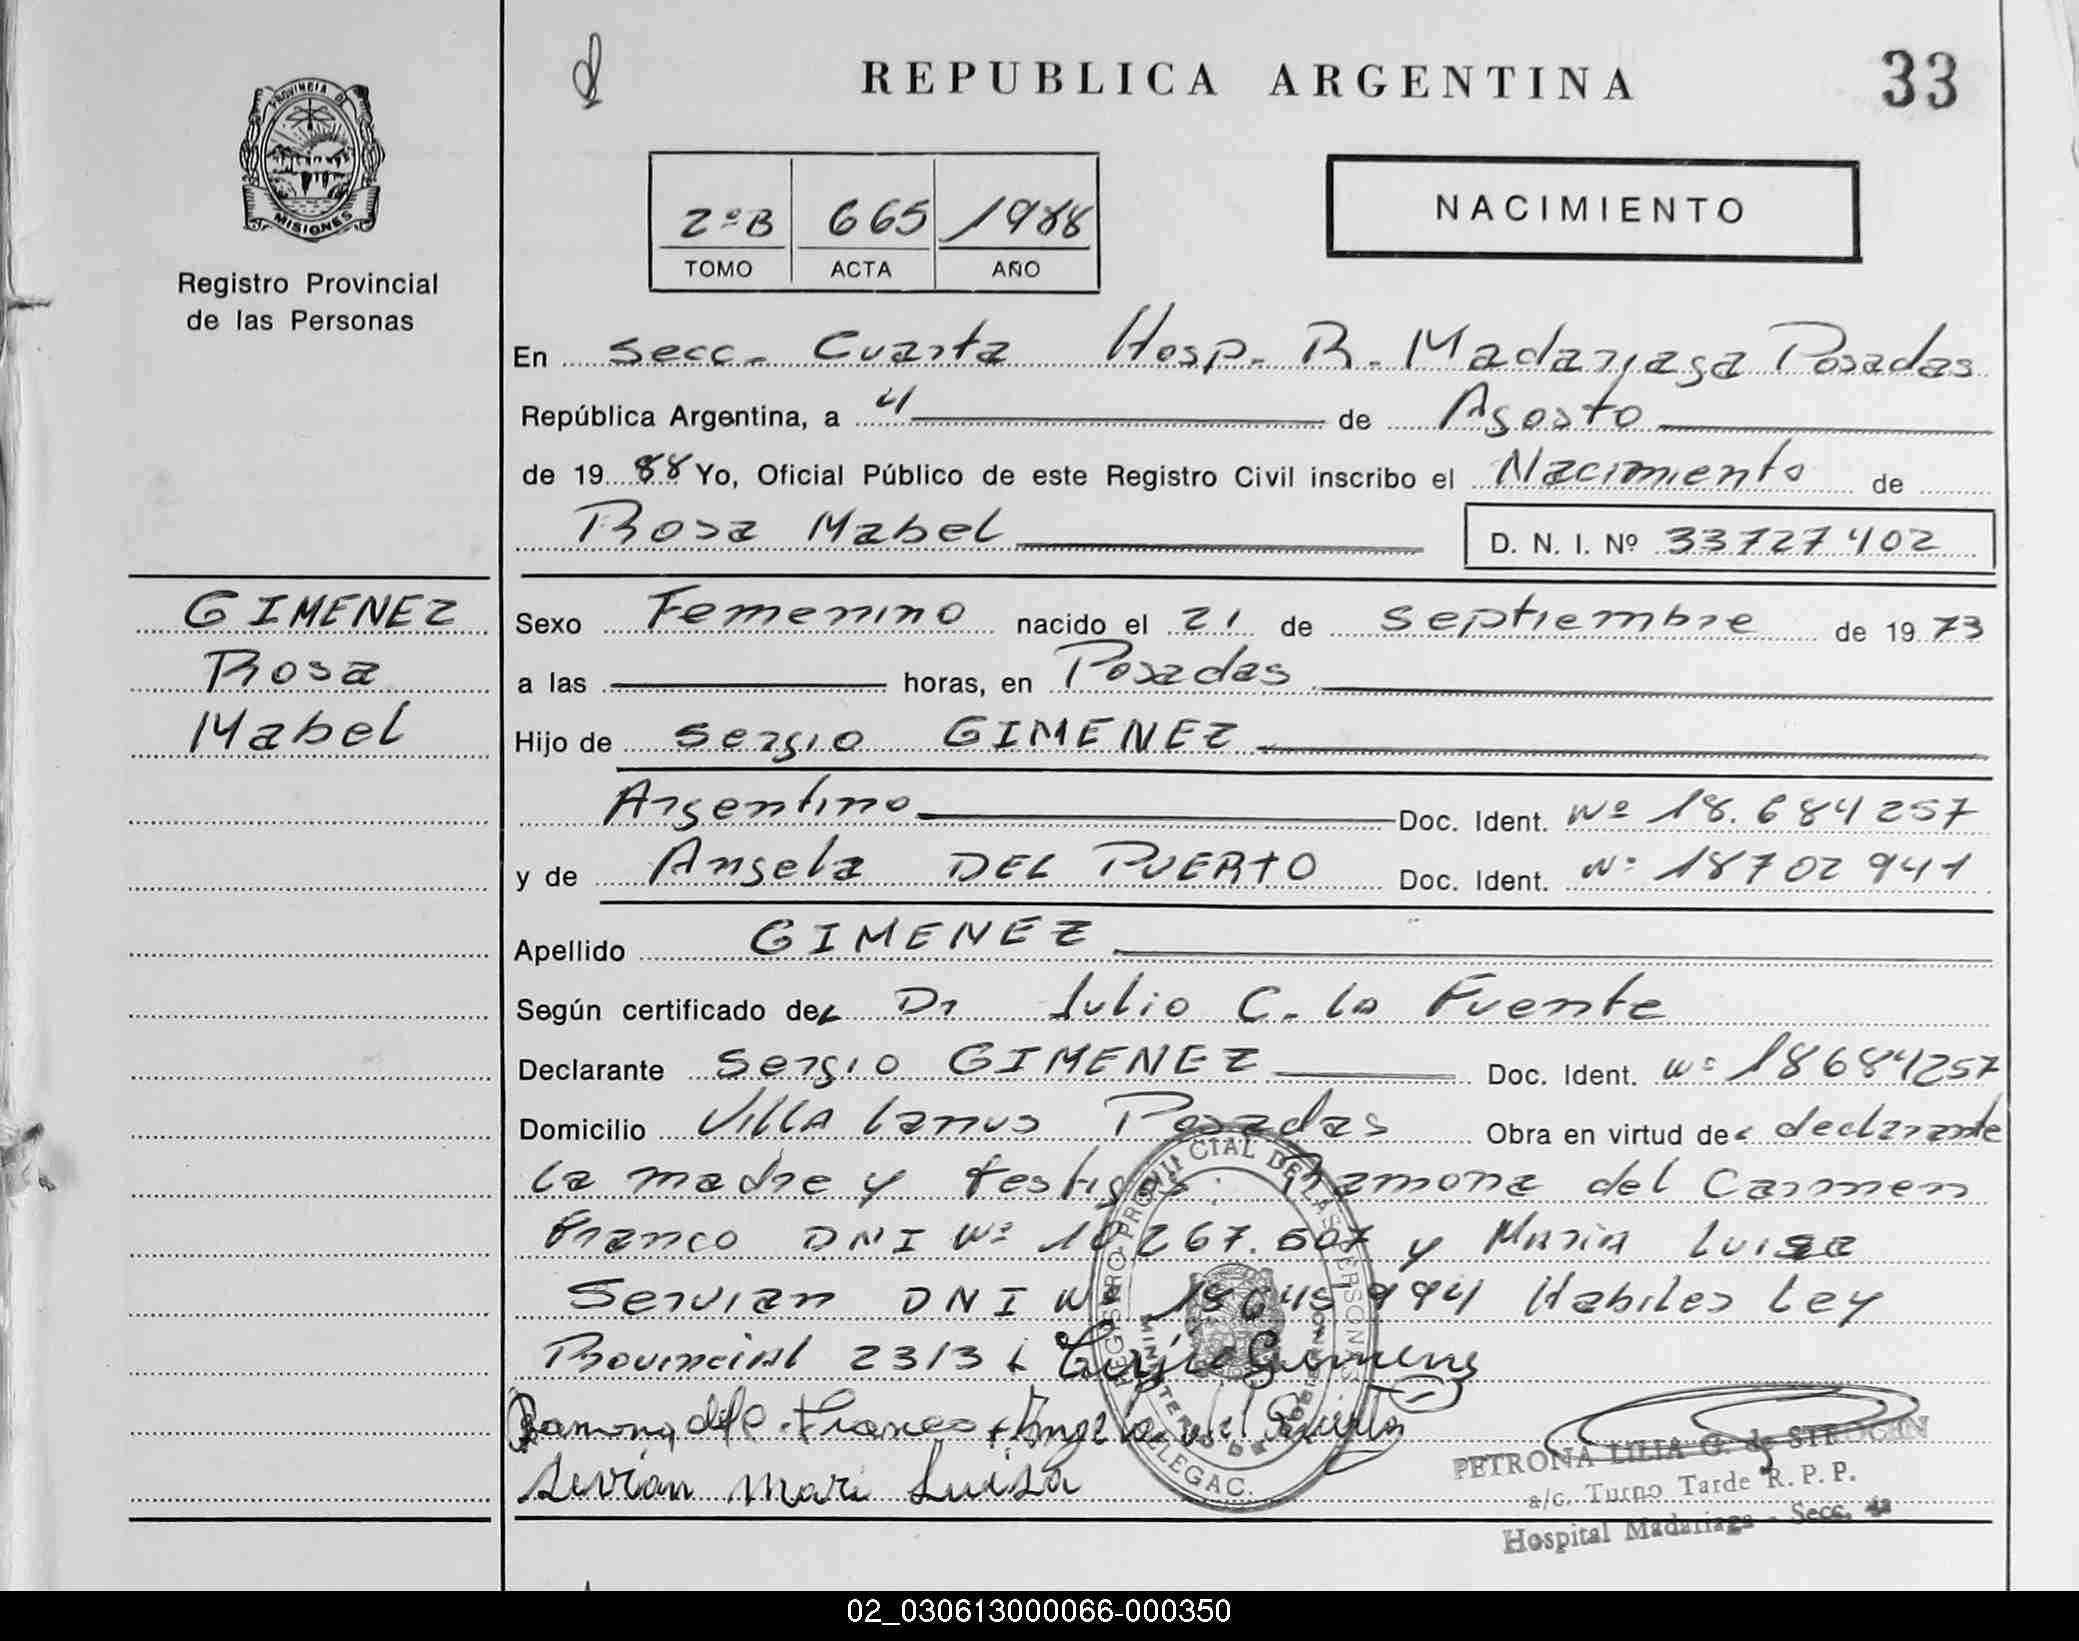 REPUBLICA ARGENTINA
33
PROVINCIA DE
MISIONES
Registro Provincial
de las Personas
2ºB 665 1988
TOMO ACTA AÑO
NACIMIENTO
En Secc. Cuarta Hosp. R. Madariaga Posadas
República Argentina, a 4 de Agosto
de 19 88 Yo, Oficial Público de este Registro Civil inscribo el Nacimiento de
Rosa Mabel D. N. I. Nº 33727402
GIMENEZ
Rosa
Mabel
Sexo Femenino nacido el 21 de Septiembre de 19 73
a las horas, en Posadas
Hijo de Sergio GIMENEZ
Argentino Doc. Ident. Nº 18.684257
y de Angela DEL PUERTO Doc. Ident. Nº 18702941
Apellido GIMENEZ
Según certificado del Dr Julio C. la Fuente
Declarante Sergio GIMENEZ Doc. Ident. Nº 18684257
Domicilio Villa Lanus Posadas Obra en virtud de declarante
la madre y testigos Ramona del Carmen
Franco DNI Nº 267.607 y Maria Luisa
Servian DNI Nº Habiles Ley
Provincial 2313
Sergio Gimenez
Ramona del C. Franco Angela del Puerto
Servian Mari Luisa
REGISTRO PROVINCIAL DE LAS PERSONAS
MINISTERIO DE GOBIERNO
DELEGAC.
PETRONA LILIA G. de
a/c. Turno Tarde R. P. P.
Hospital Madariaga - Secc. 4a
02_030613000066-000350